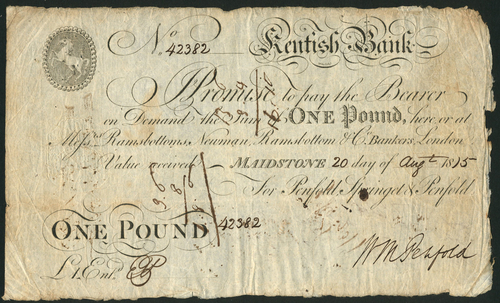 No 42382 Kentish Bank
I Promise to pay the Bearer
on Demand the Sum of ONE Pound, here or at
Messrs Ramsbottoms, Newman, Ramsbottom & Co. Bankers London
Value received MAIDSTONE 20 day of Augt 1815
For Penfold, Springet & Penfold
42382
ONE POUND
Wm Penfold
Entd.